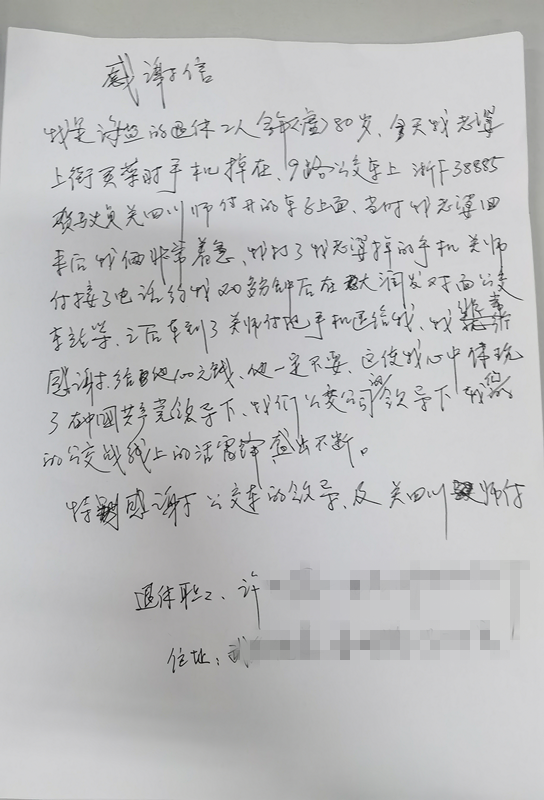 感谢信
我是 的退休工人今年(虚)80岁、今天我老婆
上街买菜时手机掉在、9路公交车上 浙F38885
驾驶员关四川师付开的车子上面、当时我老婆回
来后我俩非常着急、我打了我老婆掉的手机关师
付接了电话约我20多分钟后在大润发对面公交
车站等、之后车到了关师付把手机还给我、我非常
感谢、给他100元钱、他一定不要、这使我心中体现
了在中国共产党领导下、我们公交公司的领导下我们
的公交战线上的活雷锋 出不断。
特别感谢公交车的领导、及关四川师付
退休职工、许
住址：武